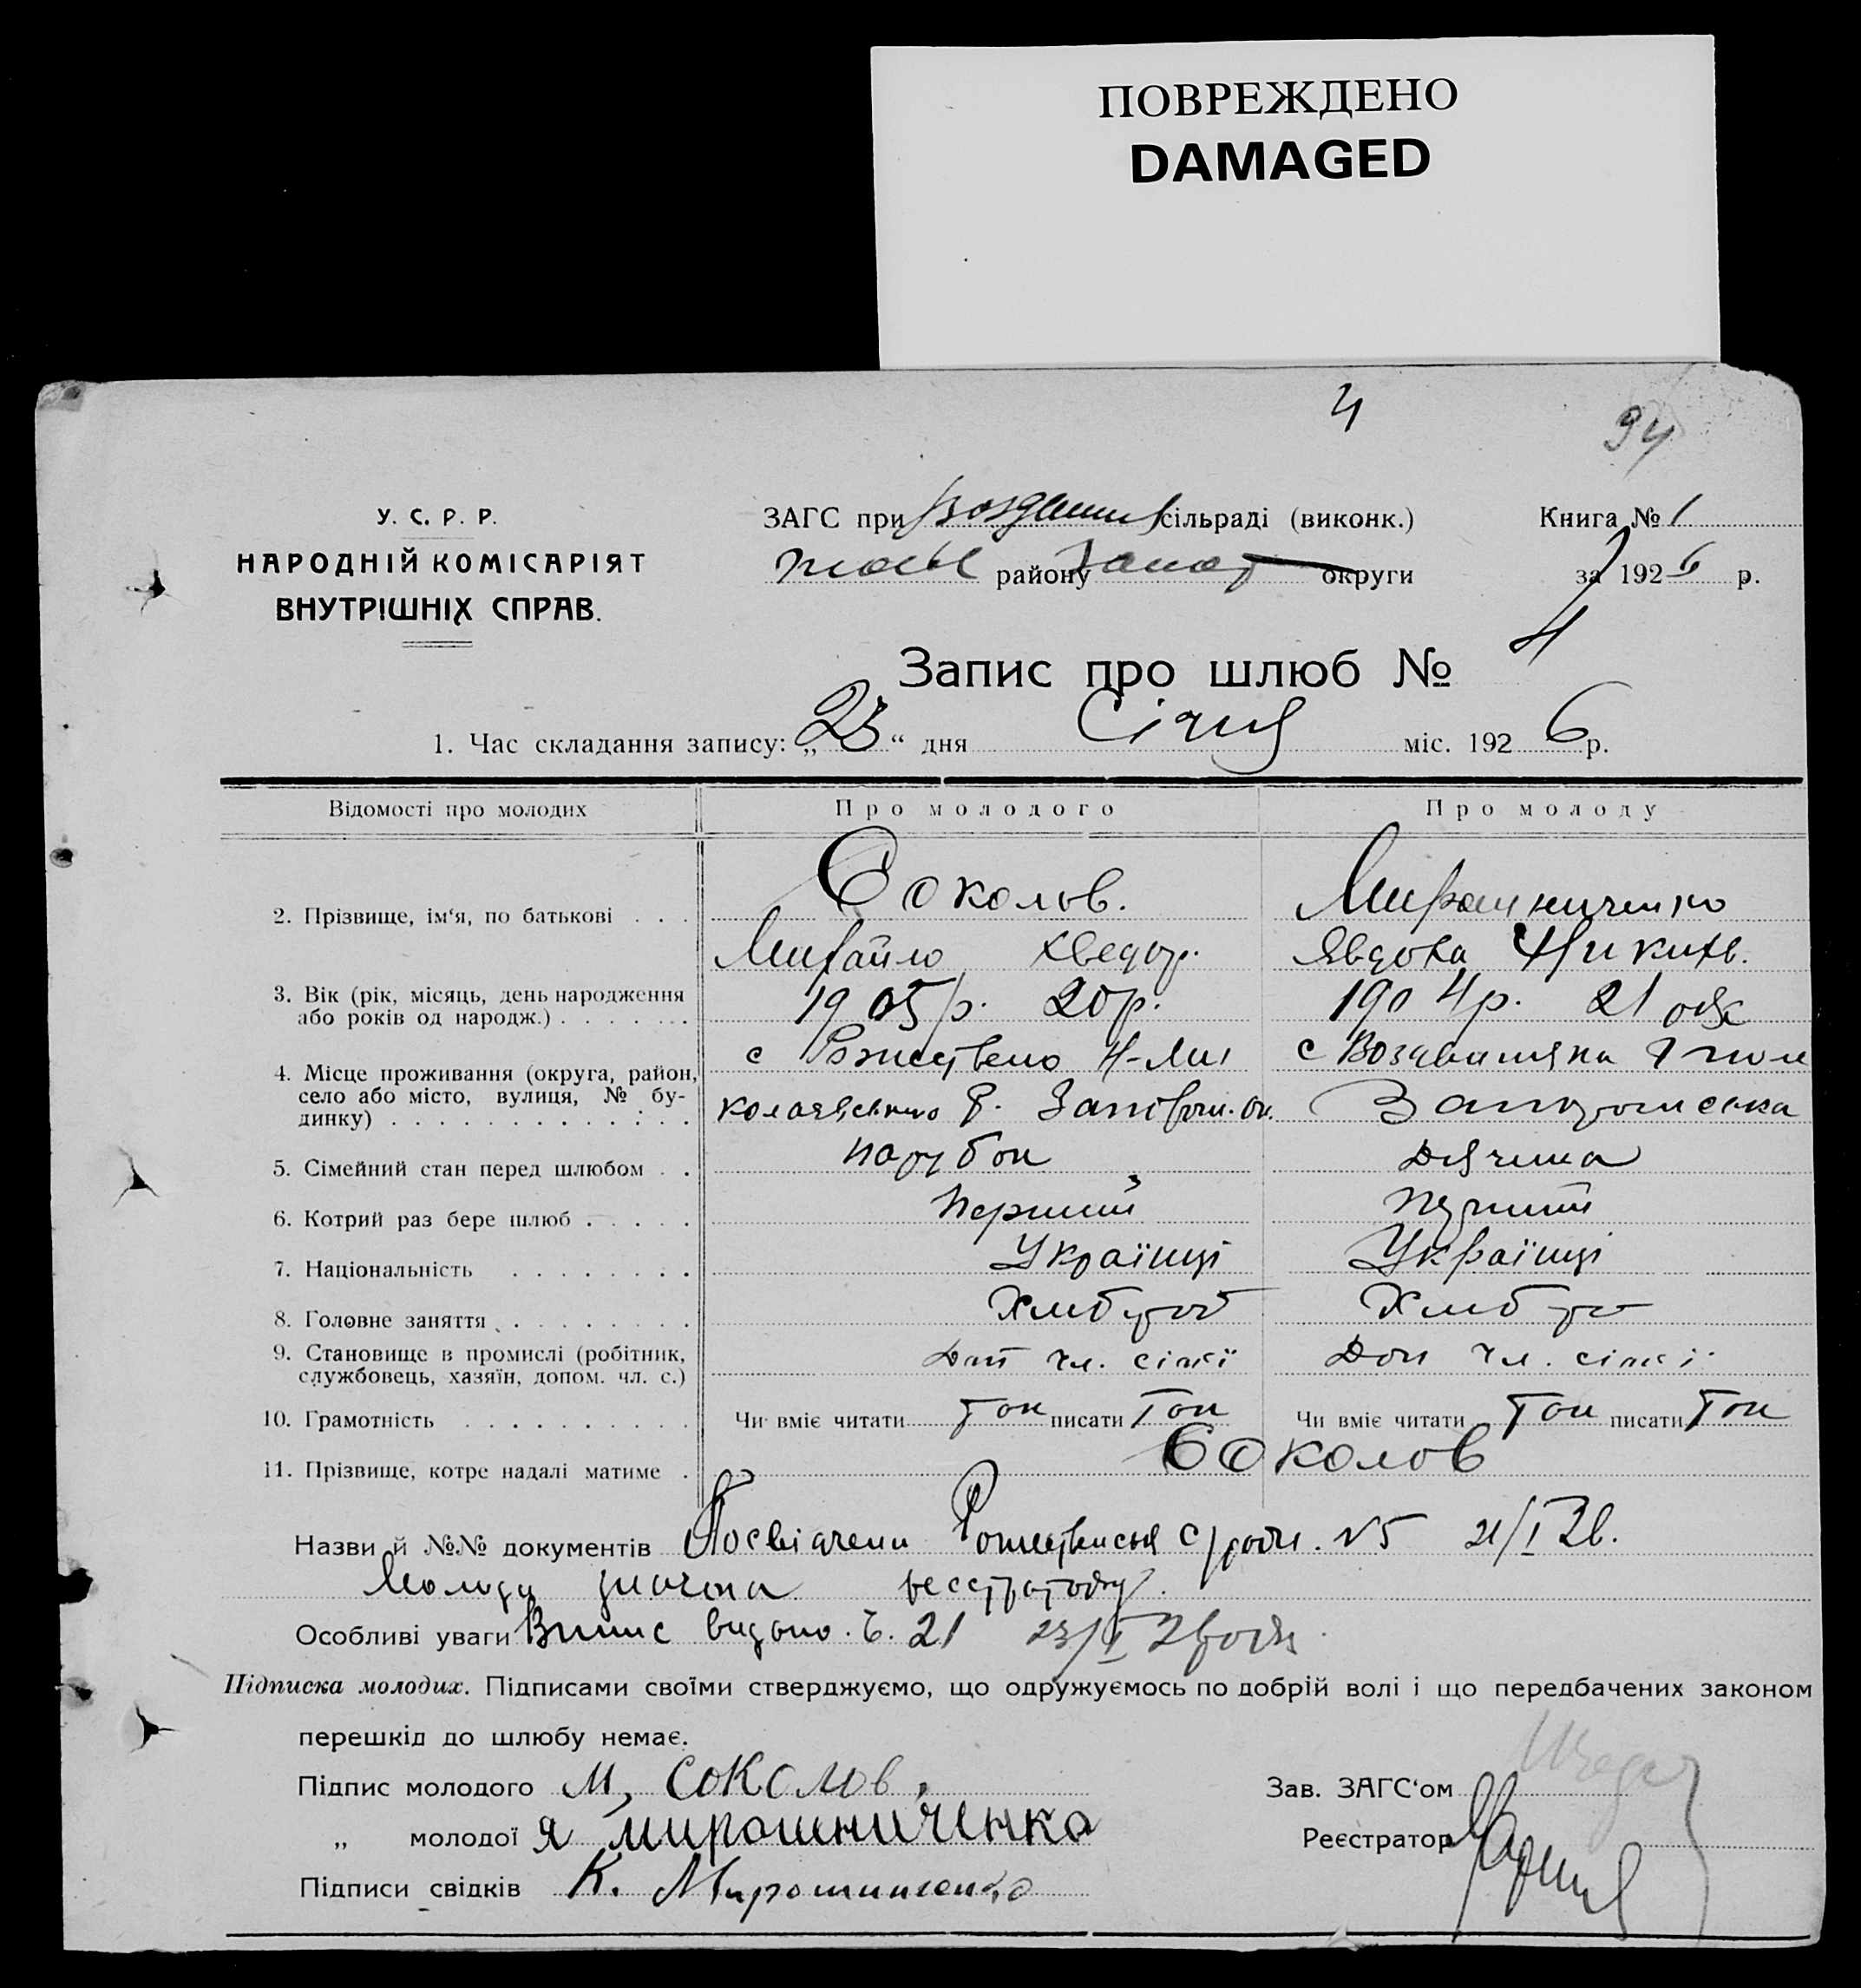 ПОВРЕЖДЕНО
DAMAGED
4
94
У. С. Р. Р.
НАРОДНІЙ КОМІСАРІЯТ
ВНУТРІШНІХ СПРАВ.
ЗАГС при сільраді (виконк.)
району Запор округи
Книга № 1
за 1926 р.
Запис про шлюб № 4
1. Час складання запису: „23“ дня Січня міс. 1926 р.
Відомості про молодих Про молодого Про молоду
2. Прізвище, ім‘я, по батькові . . . Соколов. Мирошниченко
Михайло Хведор. Явдоха Никит.
3. Вік (рік, місяць, день народження
або років од народж.) . . . . . . . 1905 р. 20 р. 1904 р. 21
4. Місце проживання (округа, район,
село або місто, вулиця, № бу-
динку) . . . . . . . . . . . . .
с Рожествено Н-Ми
колаївського Р. Запорож. ок.
с
Запорожська
5. Сімейний стан перед шлюбом . . парубок дівчина
6. Котрий раз бере шлюб . . . . . Перший перший
7. Національність . . . . . . . . Українці Українці
8. Головне заняття . . . . . . . . Хлібороб Хлібороб
9. Становище в промислі (робітник,
службовець, хазяїн, допом. чл. с.) Доп чл. сімї Доп чл. сімї
10. Грамотність . . . . . . . . . . Чи вміє читати Так писати Так Чи вміє читати Так писати Так
11. Прізвище, котре надалі матиме . Соколов
Назви й №№ документів Посвідчення №5 21/I 26.
Молода
Особливі уваги Випис видано. Ч. 21 23/I 26 року
Підписка молодих. Підписами своїми стверджуємо, що одружуємось по добрій волі і що передбачених законом
перешкід до шлюбу немає.
Підпис молодого М. Соколов.
„ молодої Я Мирошниченко
Підписи свідків К. Мирошниченко
Зав. ЗАГС‘ом
Реєстратор